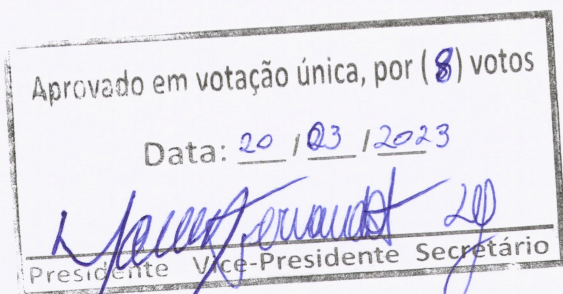 Aprovado em votação única, por (8) votos
Data: 20 / 03 / 2023
Presidente Vice-Presidente Secretário